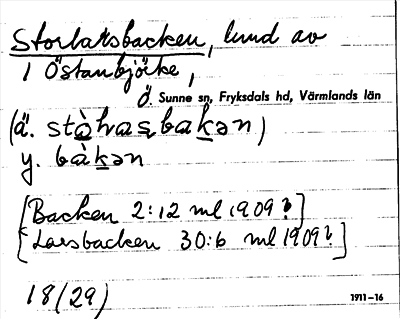 Storlarsbacken, lund av
1 Östanbjörke,
Ö. Sunne sn, Fryksdals hd, Värmlands län
(ä.
y. bàkən
[Backen 2:12 ml 1909?]
[Larsbacken 30:6 ml 1909?]
18(29)
1911–16